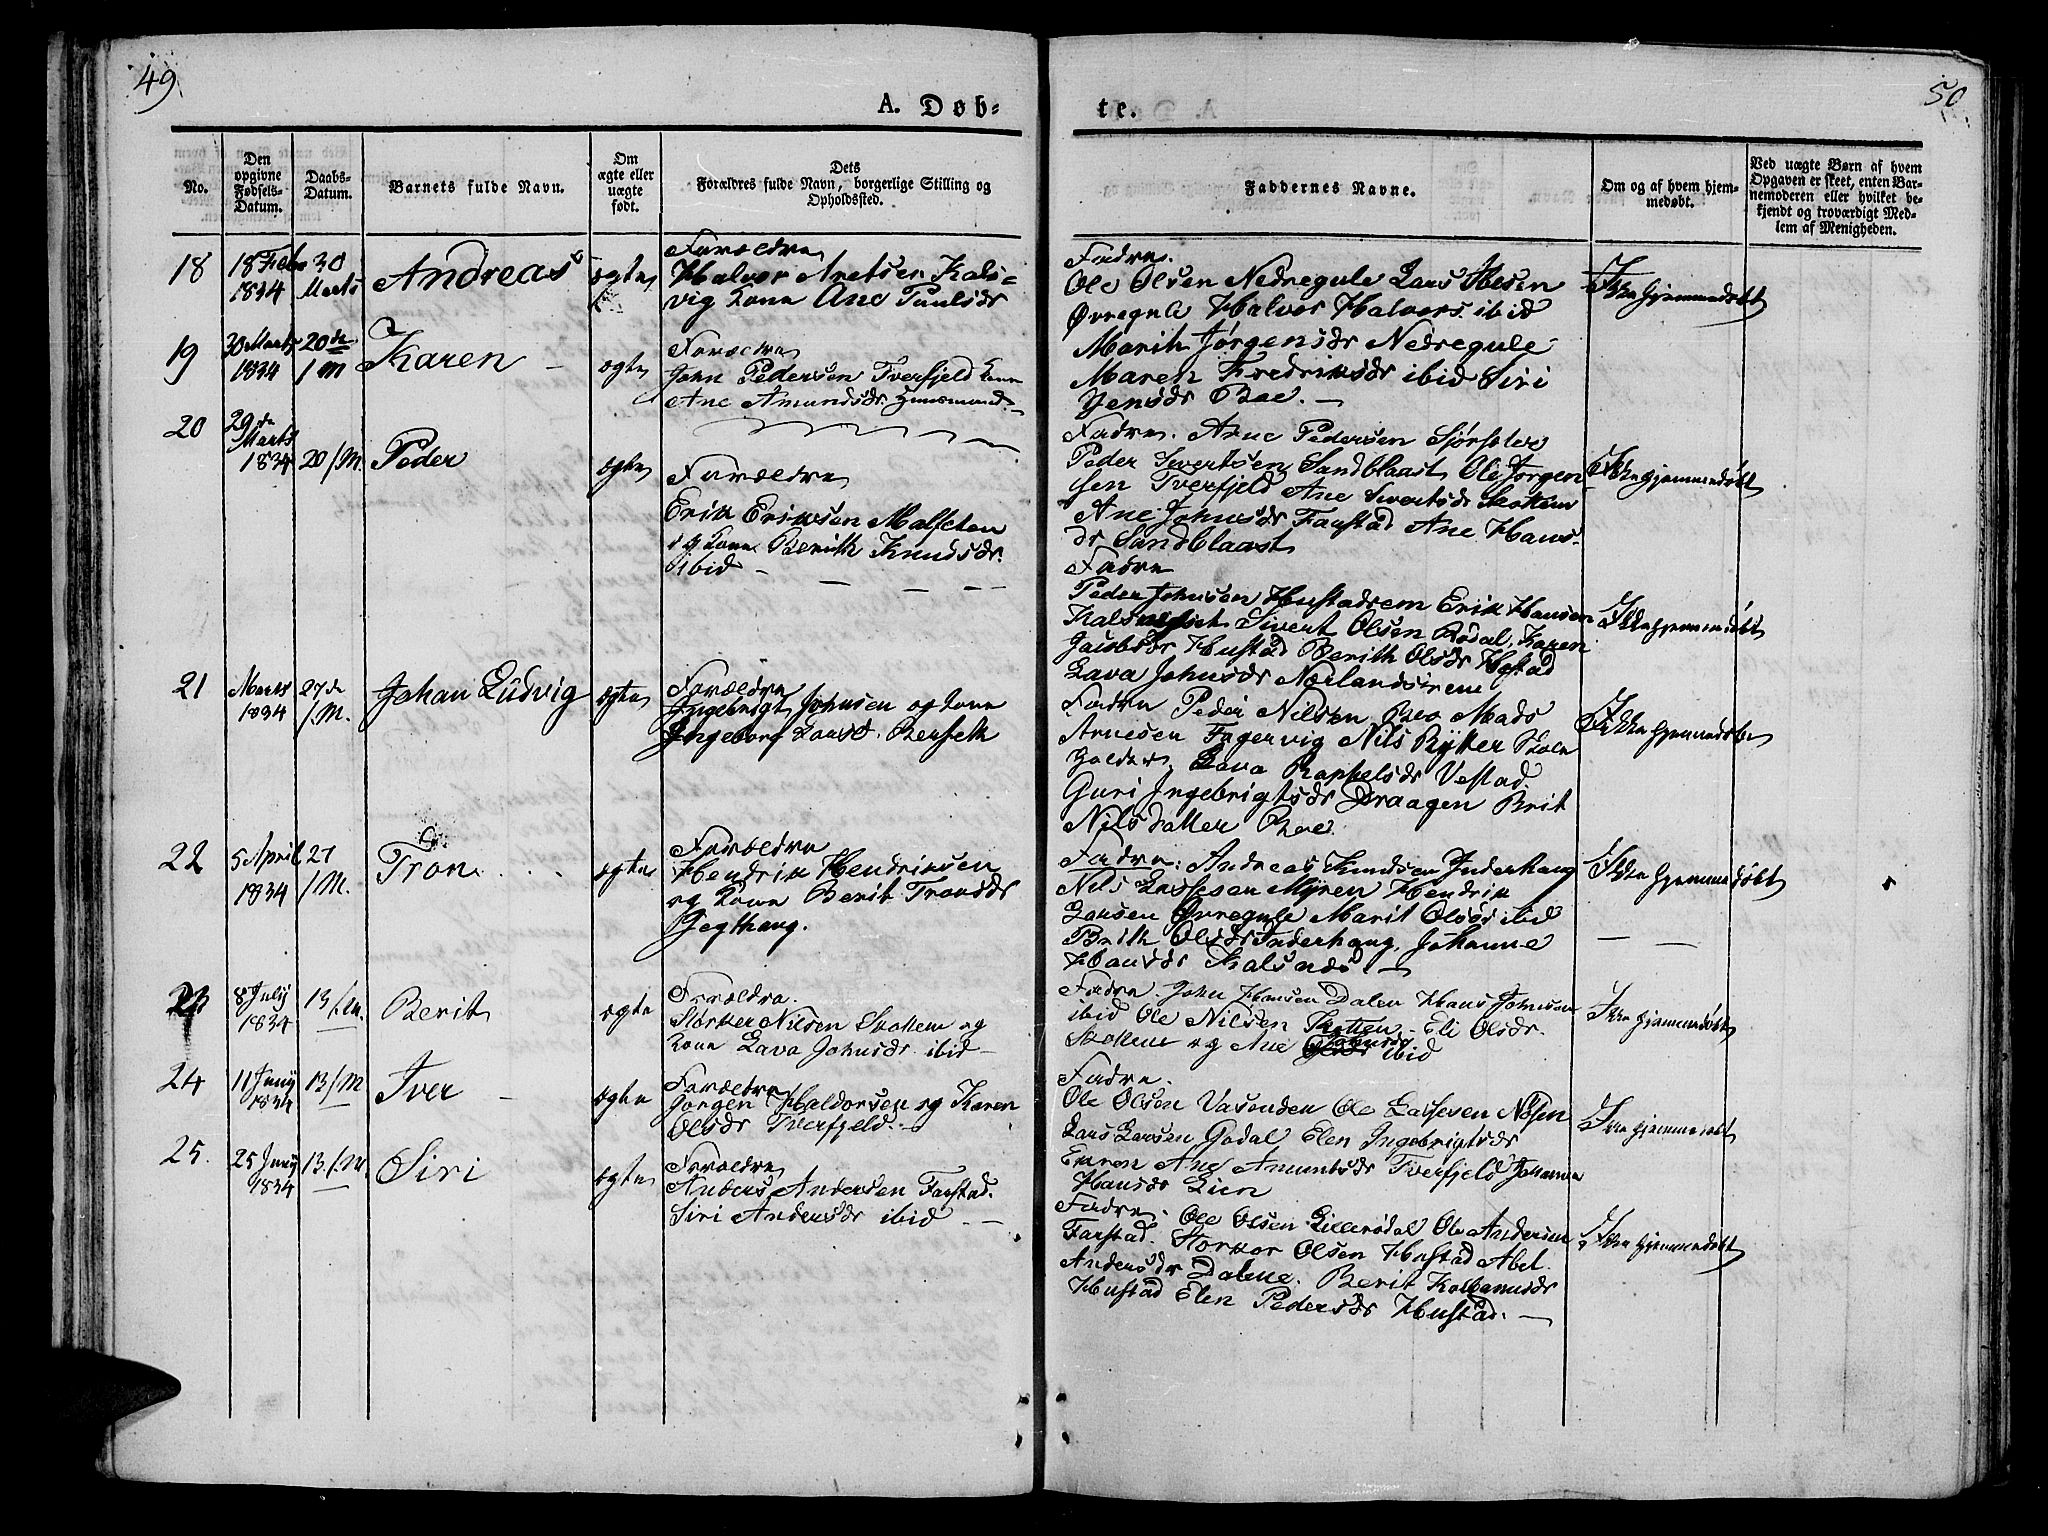 49.
50
A. Døb-
te.
No.
Den opgivne Fødsels-Datum.
Daabs-Datum.
Barnets fulde Navn.
Om ægte eller uægte født.
Dets Forældres fulde Navn, borgerlige Stilling og Opholdssted.
Faddernes Navne.
Om og af hvem hjemmedøbt.
Ved uægte Børn af hvem Opgaven er skeet, enten Barnemoderen eller hvilket bekjendt og troværdigt Medlem af Menigheden.
18
18 Febr 1834
30 Marts
Andreas
ægte
Forældre
Halvor Aretsen Kals-
vig Kone Ane Paulsdr
Fadre.
Ole Olsen Nedregule Lars Olesen
Øvregule Halvor Halvors. ibid
Marith Jørgensdr Nedregule
Maren Fredriksdr ibid Siri
Jensdr Boe. —
Ikke hjemmedøbt
19
30 Marts 1834
20de /M
Karen
ægte
Forældre
John Pedersen Tverfjeld Kone
Ane Amundsdr Huusmand
Fadre. Arne Pedersen
Peder Sivertsen Sandblaast Ole Jørgen-
sen Tverfjeld Ane Sivertsdr Skottem
Ane Johnsdr Farstad Ane Hans-
dr Sandblaast
Ikke hjemmedøbt
20
29de Marts 1834
20/M.
Peder
ægte
Forældre
Erik Eriksen Malseten
og Kone Berith Knudsdr.
ibid —
Fadre
Peder Johnsen Hustadrem Erik Hansen
Sivert Olsen Rødal, Karen
Jacobsdr Hustad Berith Olsdr Hostad
Lava Johnsdr
Ikke hjemmedøbt
21
Marts 1834
27de /M.
Johan Ludvig
ægte
Forældre
Ingebrigt Johnsen og Kone
Ingeborg Larsd. Berseth
Fadre Peder Nilsen Boe Mads
Arnesen Fagervig Nils Rytter Skole
holder, Lava Raphelsdr Vestad
Guri Ingebrigtsdr Draagen Brit
Nilsdatter Boe.
Ikke hjemmedøbt
22
5 April 1834
27 /M.
Tron
ægte
Forældre
Hendrik Hendriksen
og Kone Berit Tronsdr
Jegthaug.
Fadre: Andreas Knudsen Inderhaug
Nils Lassesen Myren Hendrik
Larsen Øvregule Marit Olsdr ibid
Brith Olsdr Inderhaug, Johanne
Hansdr Kalsnæs —
Ikke hjemmedøbt
23
8 July 1834
13/m.
Berit
ægte
Forældre.
Storker Nilsen Skottem og
Kone Lava Johnsdr ibid —
Fadre. John Hansen Dalen Hans Johnsen
ibid Ole Nilsen Skotten - Eli Olsdr.
Skottem og Ane ibid
Ikke hjemmedøbt
24
11 Juny 1834
13/M
Iver
ægte
Forældre
Jørgen Haldorsen og Karen
Olsdr Tverfjeld.
Fadre.
Ole Olsen Vasenden Ole Lassesen Nøsen
Lars Larsen Godal Elen Ingebrigtsdr
Ane Amundsdr Tverfjeld Johanne
Hansdr Lien
Ikke hjemmedøbt
25.
25 Juny 1834
13/M.
Siri
ægte
Forældre
Anders Andersen Farstad.
Siri Andersdr ibid —
Fadre. Ole Olsen Lillerødal Ole Andersen
Farstad. Storker Olsen Hustad Abel
Andersdr Dalene. Berit Kolbeinusdr
Hustad Elen Pedersdr Hustad. —
Ikke hjemmedøbt